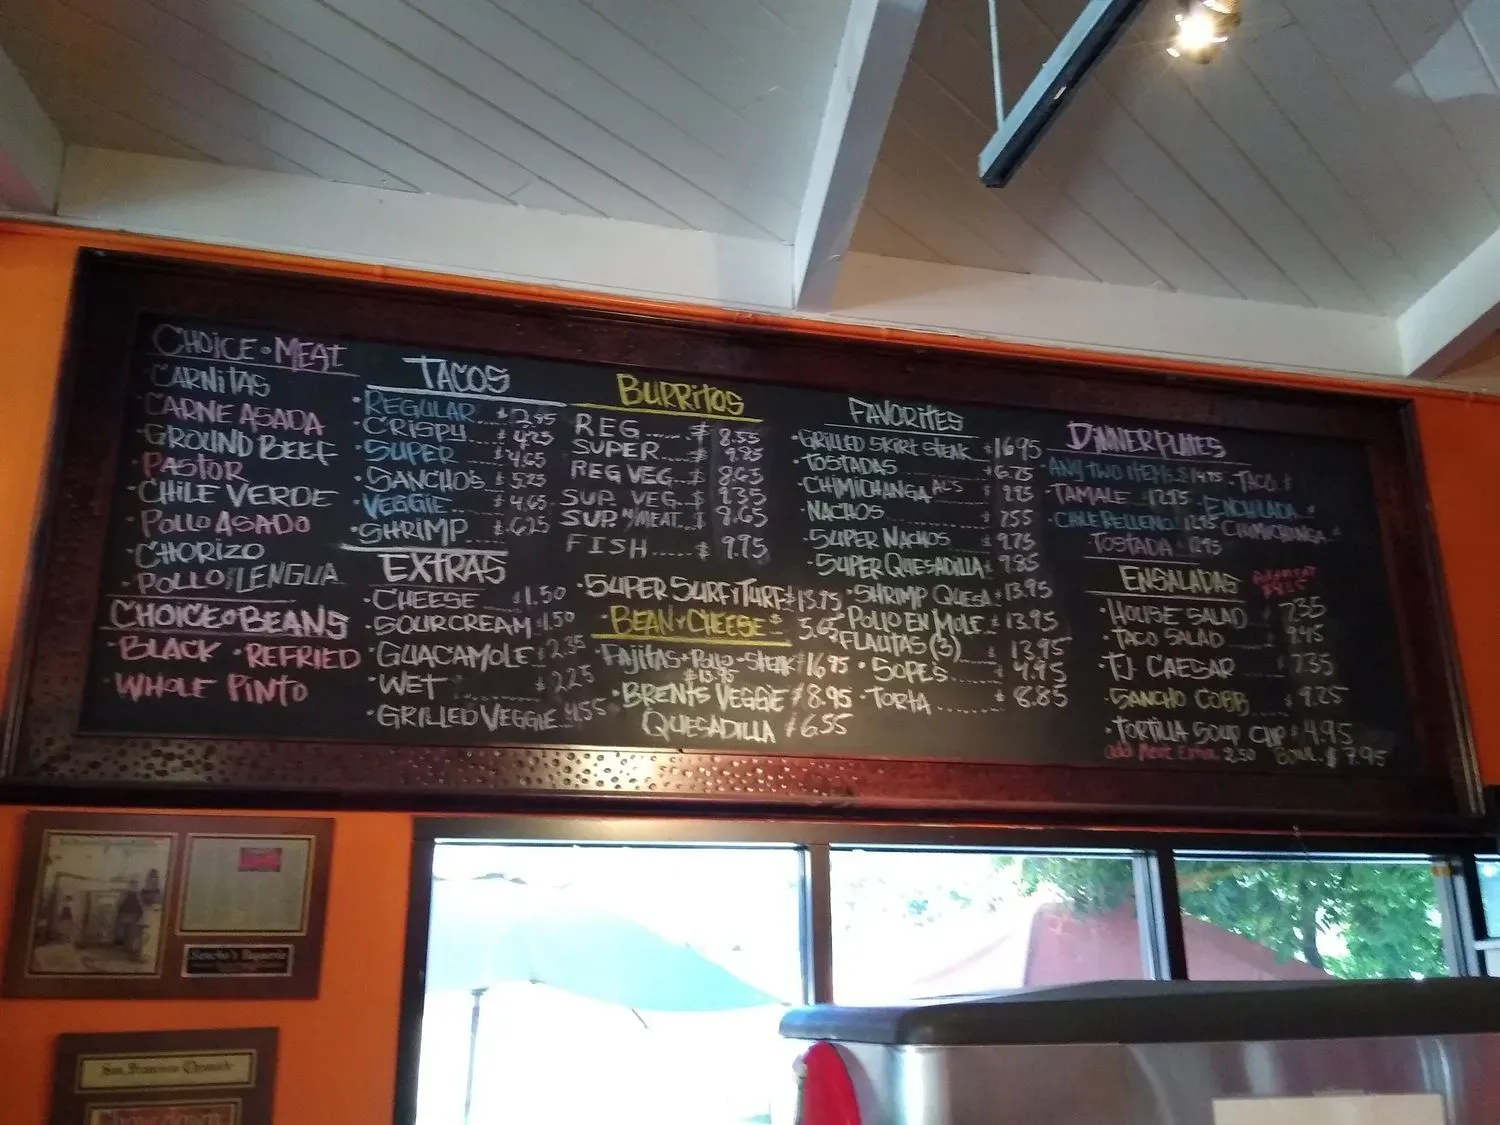 CHOICE • MEAT
• CARNITAS
• CARNE ASADA
• GROUND BEEF
• PASTOR
• CHILE VERDE
• POLLO ASADO
• CHORIZO
• POLLO LENGUA
CHOICE O BEANS
• BLACK • REFRIED
• WHOLE PINTO
TACOS
• REGULAR $2.95
• CRISPY $4.25
• SUPER $4.65
• SANCHO'S $5.25
• VEGGIE $4.65
• SHRIMP $6.25
EXTRAS
• CHEESE $1.50
• SOUR CREAM $1.50
• GUACAMOLE $2.35
• WET $2.25
• GRILLED VEGGIE $4.55
BURRITOS
REG..... $ 8.55
SUPER.... $ 9.85
REG VEG... $ 8.65
SUP. VEG... $ 9.35
SUP. W/MEAT... $ 8.65
FISH..... $ 9.95
• SUPER SURF Y TURF $13.95
• BEAN Y CHEESE $ 5.65
• FAJITAS • POLLO • STEAK $16.95
$13.95
• BRENTS VEGGIE $8.95
QUESADILLA $6.55
FAVORITES
• GRILLED SKIRT STEAK $16.95
• TOSTADAS $6.25
• CHIMICHANGA $9.95
• NACHOS $7.55
• SUPER NACHOS $9.75
• SUPER QUESADILLA $9.85
• SHRIMP QUESA $13.95
POLLO EN MOLE $13.95
FLAUTAS (3) $13.95
• SOPE'S $4.95
• TORTA $8.85
DINNER PLATES
• ANY TWO ITEMS $14.95 • TACO $
• TAMALE 12.95 • ENCHILADA $
• CHILE RELLENO 12.95 CHIMICHANGA
• TOSTADA $12.95
ENSALADAS
• HOUSE SALAD $7.35
• TACO SALAD $9.45
• TJ CAESAR $7.35
• SANCHO COBB $9.25
• TORTILLA SOUP CUP $4.95
add Meat Extra 2.50 BOWL $7.95
Sancho's Taqueria
San Francisco Chronicle